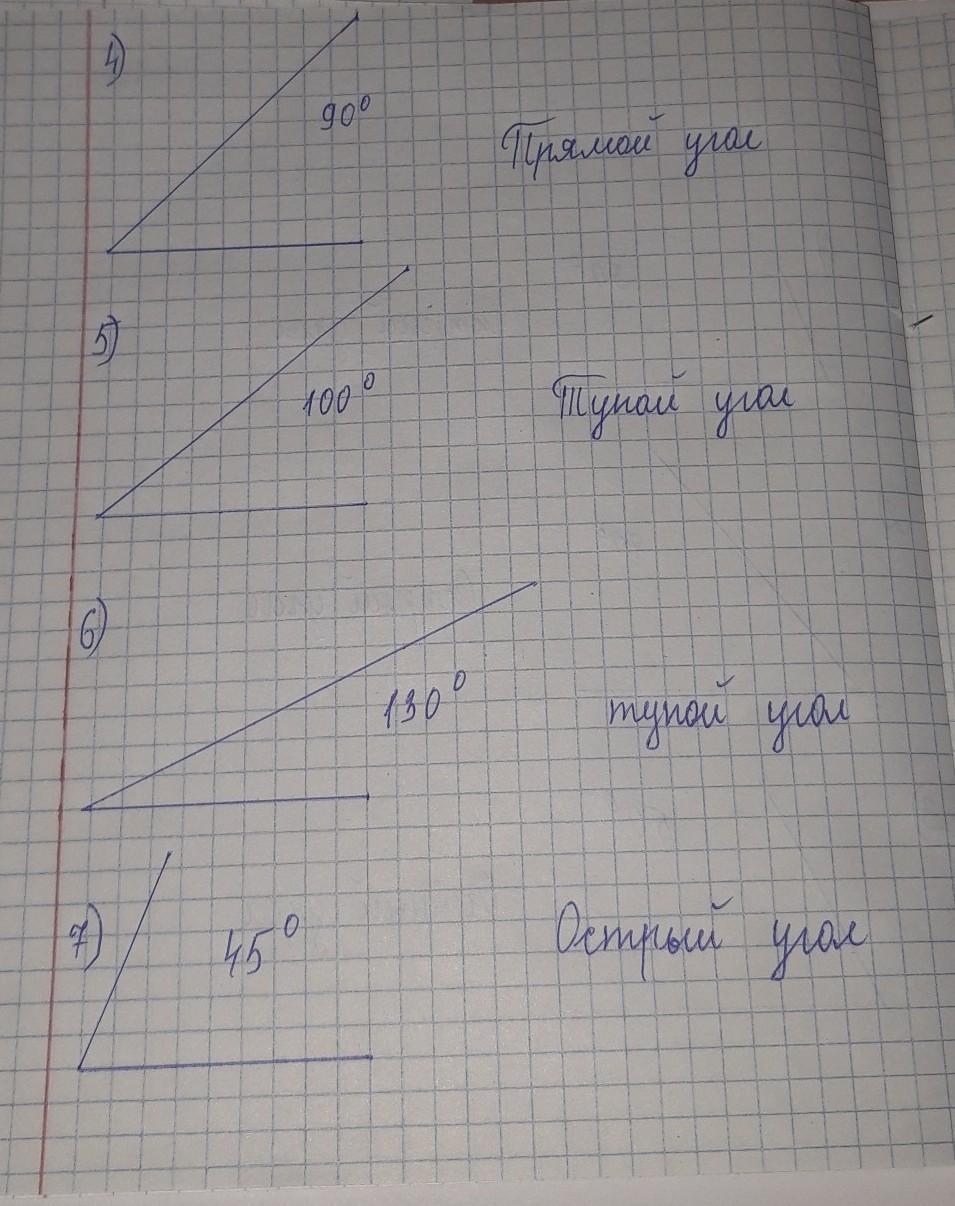 4)
90⁰
Прямой угол
5)
100⁰
Тупой угол
6)
130⁰
тупой угол
7)
45⁰
Острый угол